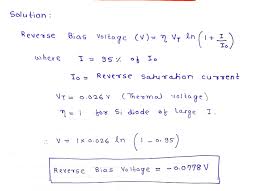 Solution :
Reverse Bias Voltage (V) = η V_T ln (1 + I/I₀)
where I = 95% of I₀
I₀ = Reverse saturation current
V_T = 0.026 V (Thermal voltage)
η = 1 for Si diode of large I.
∴ V = 1 x 0.026 ln (1 - 0.95)
Reverse Bias Voltage = -0.0778 V